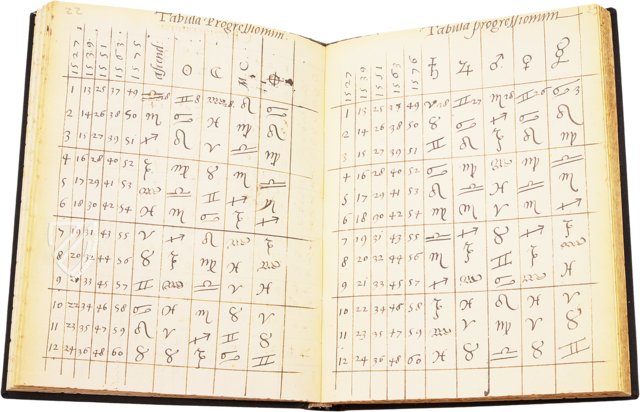 22
Tabula Progreſſionum
1527 1539 1551 1563 1575 Aſcend. ☉ ☽ M.C. ⊕
1 13 25 37 49 ♎ ♊ 8 ♒ 8 ♌ ♋
2 14 26 38 50 ♏ ♋ ♓ ♍ ♌
3 15 27 39 51 ♐ ♌ ♈ ♎ ♍
4 16 28 40 52 ♑ ♍ ♉ ♏ ♎
5 17 29 41 53 ♒ ♎ ♊ ♐ ♏
6 18 30 42 54 ♓ ♏ ♋ ♑ ♐
7 19 31 43 55 ♈ ♐ ♌ ♒ ♑
8 20 32 44 56 ♉ ♑ ♍ ♓ ♒
9 33 45 57 ♊ ♒ ♎ ♈ ♓
10 22 34 46 58 ♋ ♓ ♏ ♉ ♈
11 23 35 47 59 ♌ ♈ ♐ ♊ ♉
12 24 36 48 60 ♍ ♉ ♑ ♋ ♊
Tabula progreſſionum
1527 1539 1551 1563 ♄ ♃ ♂ ♀ ☿
1 13 25 37 49 ♈ ♊ 27 ♏ 28 ♊ 26 ♋
2 14 26 38 50 ♉ ♋ ♐ ♋ ♌
3 15 27 39 51 ♊ ♌ ♑ ♌ ♍
4 16 28 40 52 ♋ ♍ ♒ ♍ ♎
5 17 29 41 53 ♌ ♎ ♓ ♎ ♏
6 18 30 42 54 ♍ ♏ ♈ ♏ ♐
7 19 31 43 55 ♎ ♐ ♉ ♐ ♑
8 20 32 44 56 ♏ ♑ ♊ ♑ ♒
9 21 33 45 57 ♐ ♒ ♋ ♒ ♓
10 22 34 46 58 ♑ ♓ ♌ ♓ ♈
11 23 35 47 59 ♒ ♈ ♍ ♈ ♉
12 24 36 48 60 ♓ ♉ ♎ ♉ ♊